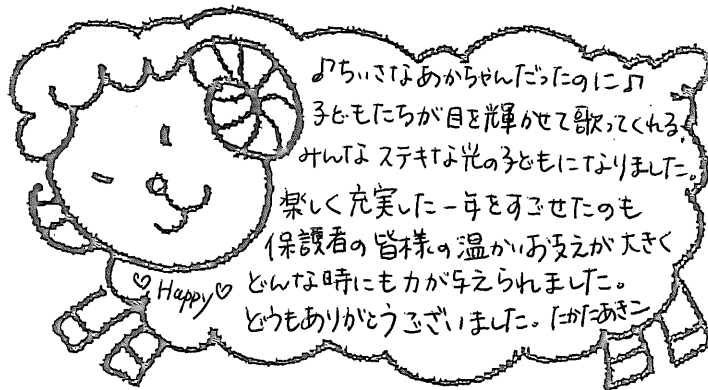 ♪ちいさなあかちゃんだったのに♪
子どもたちが目を輝かせて歌ってくれる、
みんなステキな光の子どもになりました。
楽しく充実した一年をすごせたのも
保護者の皆様の温かいお支えが大きく
どんな時にも力が与えられました。
どうもありがとうございました。たかたあきこ
♡Happy♡